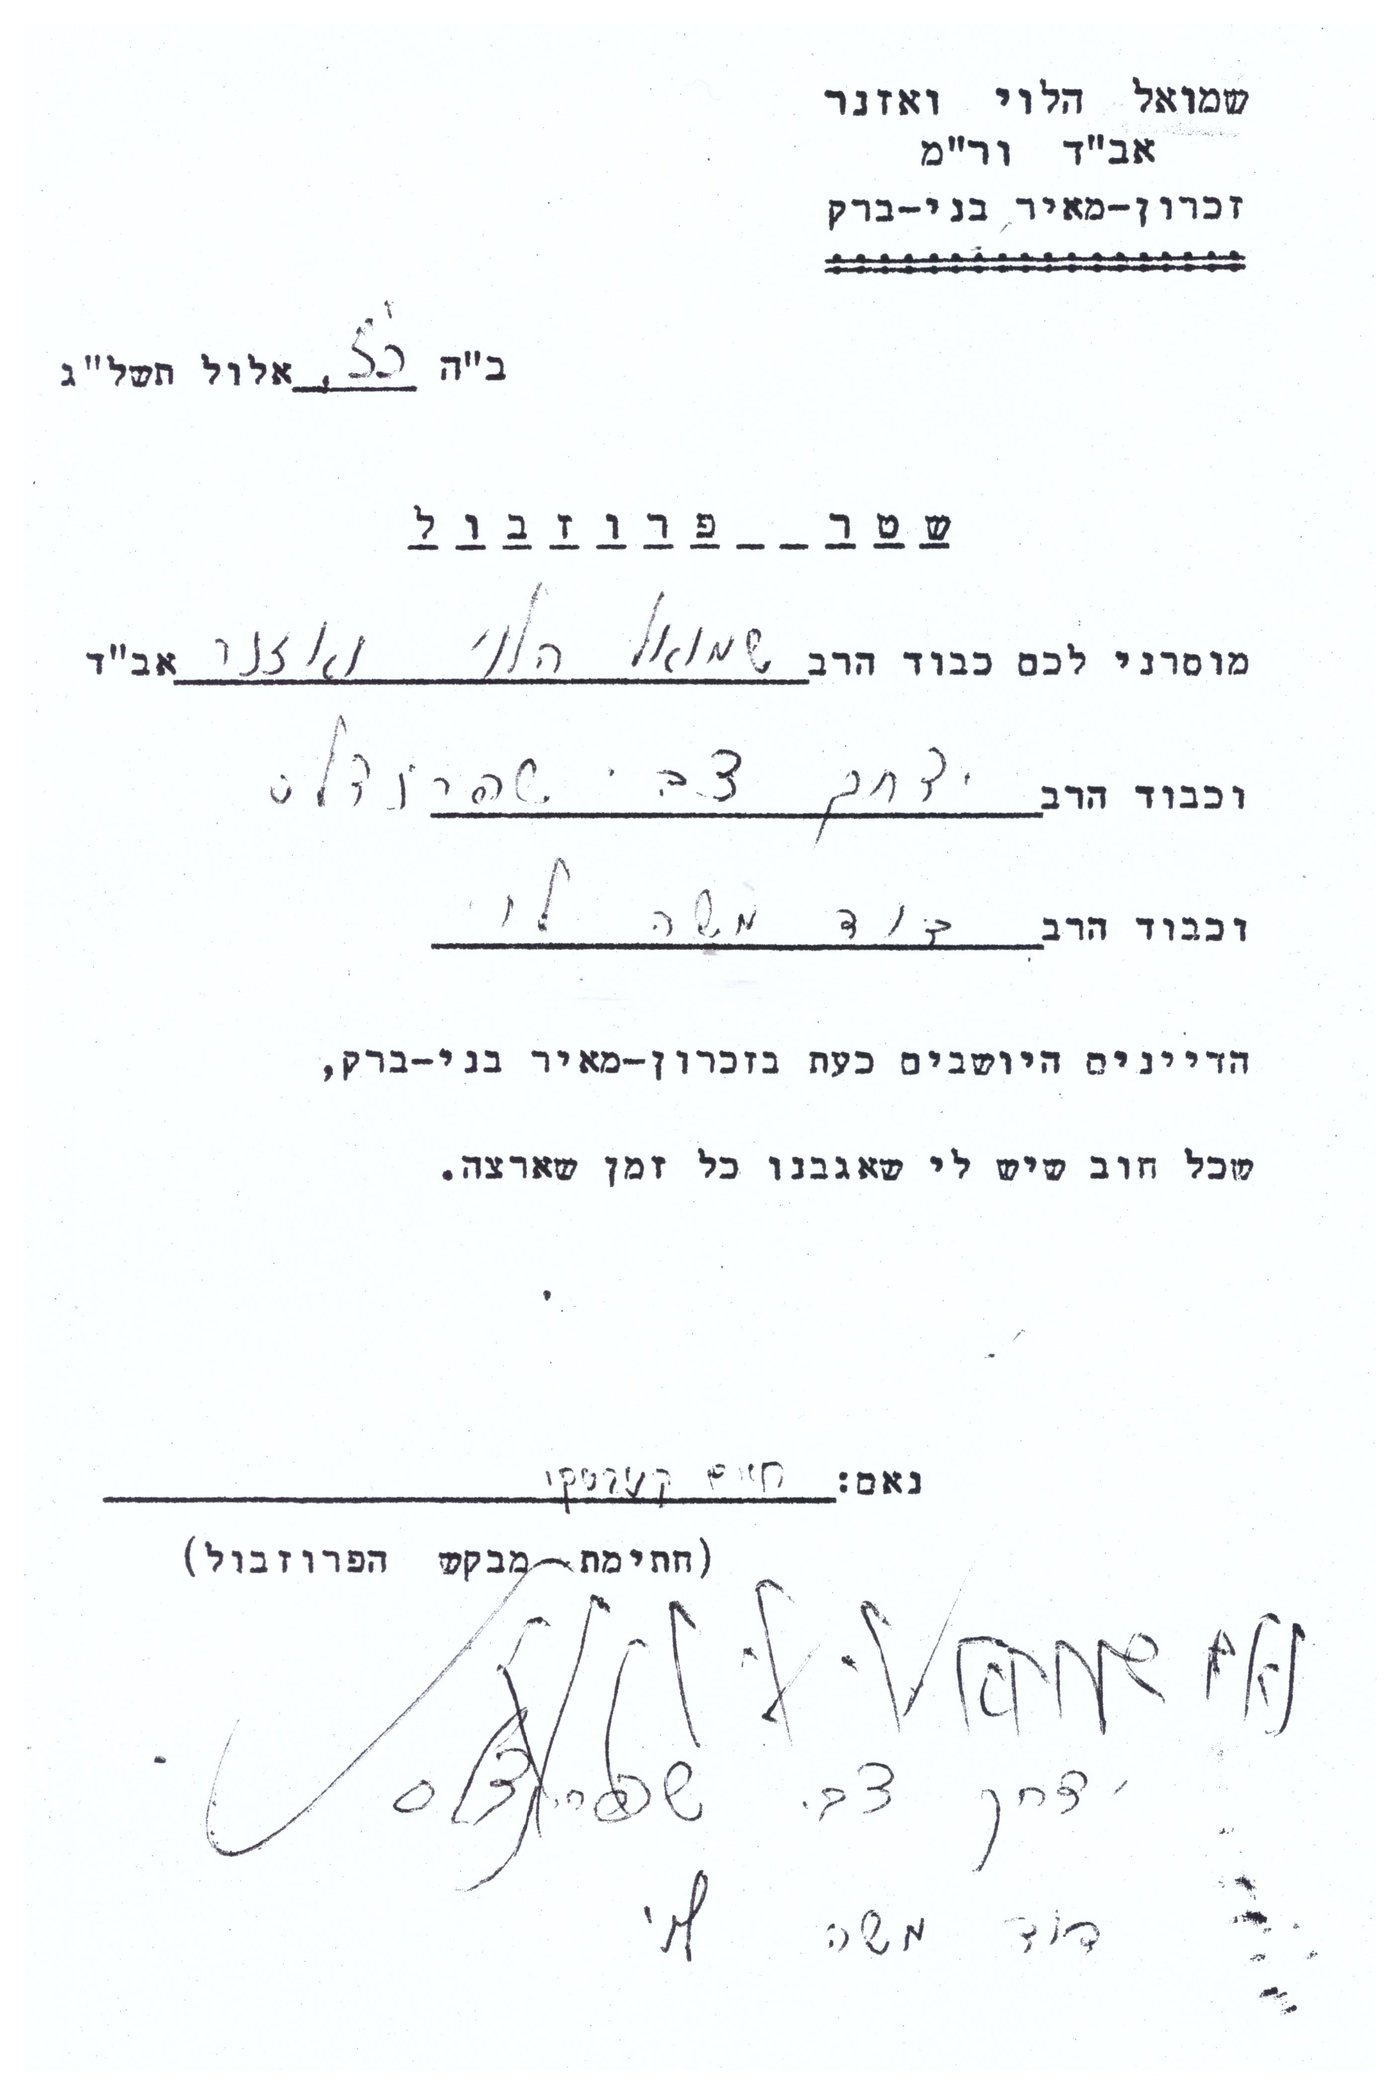 שמואל הלוי ואזנר
אב"ד ור"מ
זכרון-מאיר בני-ברק
ב"ה אלול תשל"ג
שטר פרוזבול
מוסרני לכם כבוד הרב שמואל הלוי ואזנר אב"ד
וכבוד הרב יצחק צבי שפרונדלס
וכבוד הרב דוד משה לוי
הדיינים היושבים כעת בזכרון-מאיר בני-ברק,
שכל חוב שיש לי שאגבנו כל זמן שארצה.
נאם: חיים
(חתימת מבקש הפרוזבול)
נאם שמואל הלוי
יצחק צבי
דוד משה לוי